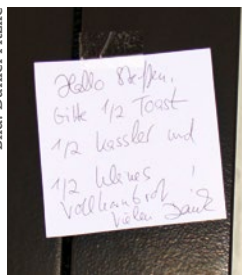 Hallo Steffen,
Bitte 1/2 Toast
1/2 Kassler und
1/2 kleines
Vollkornbrot !
Vielen Dank